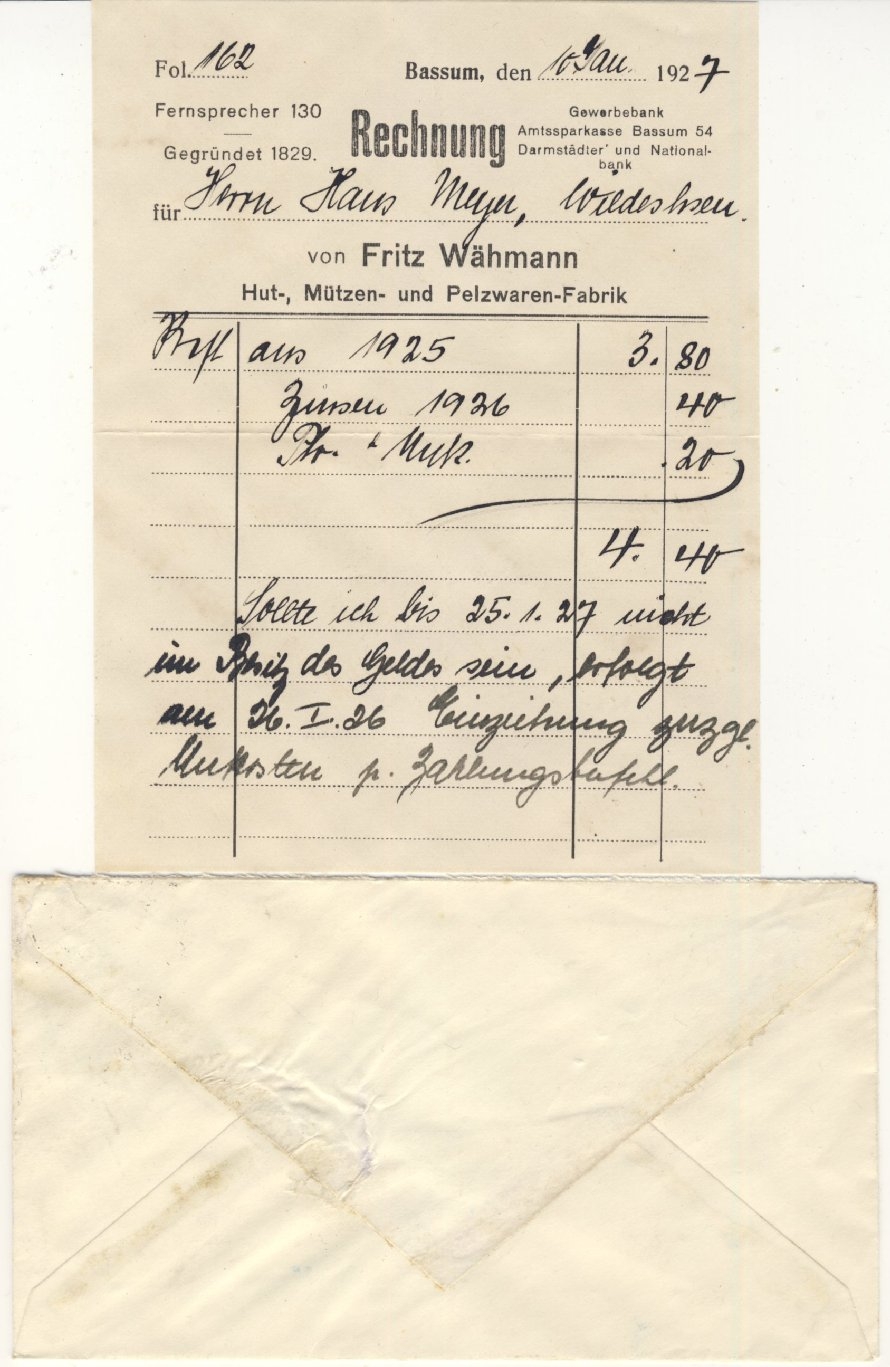 Fol. 162
Bassum, den 10 Jan. 1927
Fernsprecher 130
Gegründet 1829.
Rechnung
Gewerbebank
Amtssparkasse Bassum 54
Darmstädter und National-
bank
für Herrn Hans Meyer,
von Fritz Wähmann
Hut-, Mützen- und Pelzwaren-Fabrik
aus 1925 3. 80
Zinsen 1926 40
Unk. .20
4. 40
Sollte ich bis 25.1.27 nicht
im Besitz des Geldes sein, erfolgt
am 26.I.26 Einziehung zuzgl.
Unkosten p. Zahlungsbefehl.